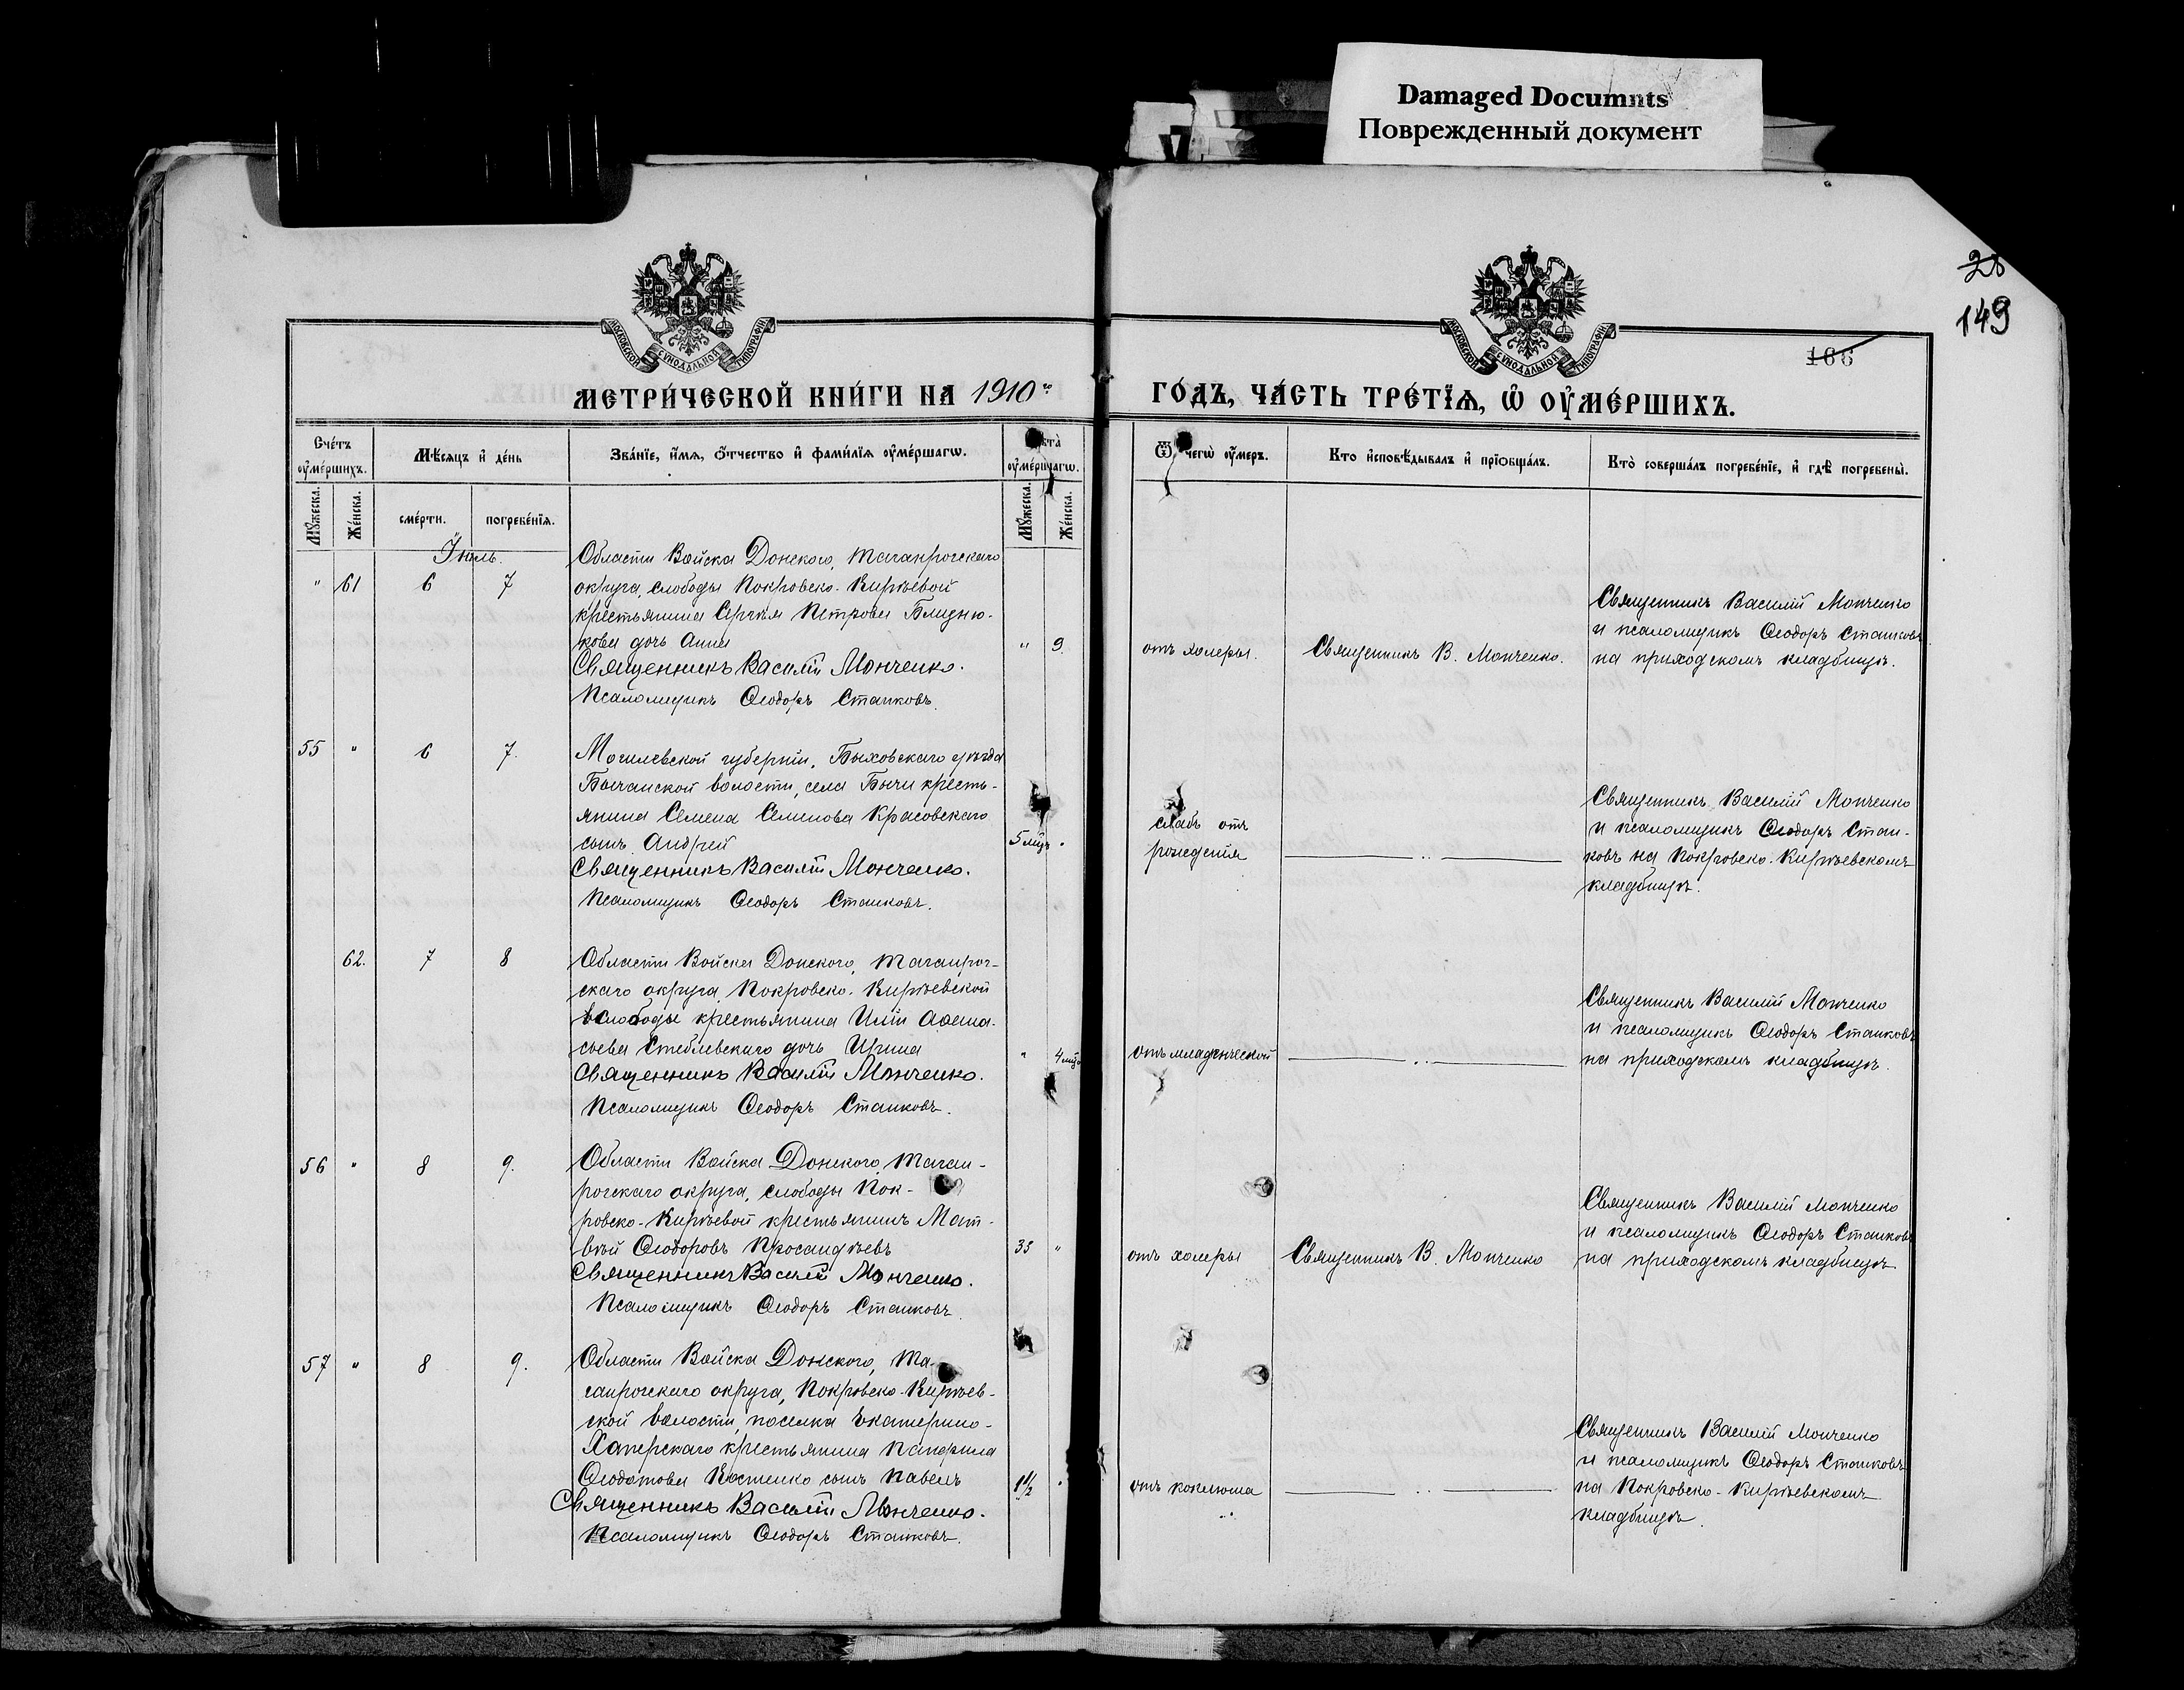 Damaged Documnts
Поврежденный документ
28
149
166
МОСКОВСКОЙ СѴНОДАЛЬНОЙ ТИПОГРАФІИ
МОСКОВСКОЙ СѴНОДАЛЬНОЙ ТИПОГРАФІИ
МЕТРИ́ЧЕСКОЙ КНИ́ГИ НА 1910 го
ГО́ДЪ, ЧА́СТЬ ТРЕ́ТЇѦ, Ѡ҆ ОУ҆МЕ́РШИХЪ.
Сче́тъ оу҆ме́ршихъ.
Мѣ́сяцъ и҆ де́нь
Зва́нїе, и҆́мѧ, ѻ҆́тчество и҆ фами́лїѧ оу҆ме́ршагѡ.
оу҆ме́ршагѡ.
Ѿ чегѡ̀ оу҆́меръ.
Кто и҆сповѣ́дывалъ и҆ прїѡбща́лъ.
Кто̀ соверша́лъ погребе́нїе, и҆ гдѣ̀ погребены̀.
Мꙋ́жеска.
Же́нска.
сме́рти.
погребе́нїѧ.
Мꙋ́жеска.
Же́нска.
Іюль.
Области Войска Донского, Таганрогскаго
" 61 6 7 округа, слободы Покровско-Кирѣевой
крестьянина Сергѣя Петрова Близню-
кова дочь Анна " 9.
Священникъ Василій Монченко.
Псаломщикъ Ѳеодоръ Станковъ.
отъ холеры.
Священникъ В. Монченко.
Священникъ Василій Монченко
и псаломщикъ Ѳеодоръ Станковъ
на приходскомъ кладбищѣ.
55 " 6 7. Могилевской губерніи, Быховскаго уѣзда
Бычанской волости, села Бычи кресть-
янина Семена Семенова Красовскаго
сынъ Андрей 5 мцъ "
Священникъ Василій Монченко.
Псаломщикъ Ѳеодоръ Станковъ.
слабъ отъ
рожденія
Священникъ Василій Монченко
и псаломщикъ Ѳеодоръ Стан-
ковъ на Покровско-Кирѣевскомъ
кладбищѣ.
62. 7 8 Области Войска Донского, Таганрог-
скаго округа, Покровско-Кирѣевской
слободы крестьянина Иліи Аѳана-
сьева Стеблевскаго дочь Ирина " 4 мцъ
Священникъ Василій Монченко.
Псаломщикъ Ѳеодоръ Станковъ.
отъ младенческой
Священникъ Василій Монченко
и псаломщикъ Ѳеодоръ Станковъ
на приходскомъ кладбищѣ.
56 " 8 9. Области Войска Донского, Таган-
рогскаго округа, слободы Пок-
ровско-Кирѣевой крестьянинъ Мат-
вѣй Ѳеодоровъ 33 "
Священникъ Василій Монченко.
Псаломщикъ Ѳеодоръ Станковъ.
отъ холеры
Священникъ В. Монченко
Священникъ Василій Монченко
и псаломщикъ Ѳеодоръ Станковъ
на приходскомъ кладбищѣ
57 " 8 9. Области Войска Донского, Та-
ганрогскаго округа, Покровско-Кирѣев-
ской волости, поселка Екатерино-
Хаперскаго крестьянина Панфила
Ѳеодотова Костенко сынъ Павелъ 1 1/2 "
Священникъ Василій Монченко.
Псаломщикъ Ѳеодоръ Станковъ.
отъ коклюша
Священникъ Василій Монченко
и псаломщикъ Ѳеодоръ Станковъ
на Покровско-Кирѣевскомъ
кладбищѣ.